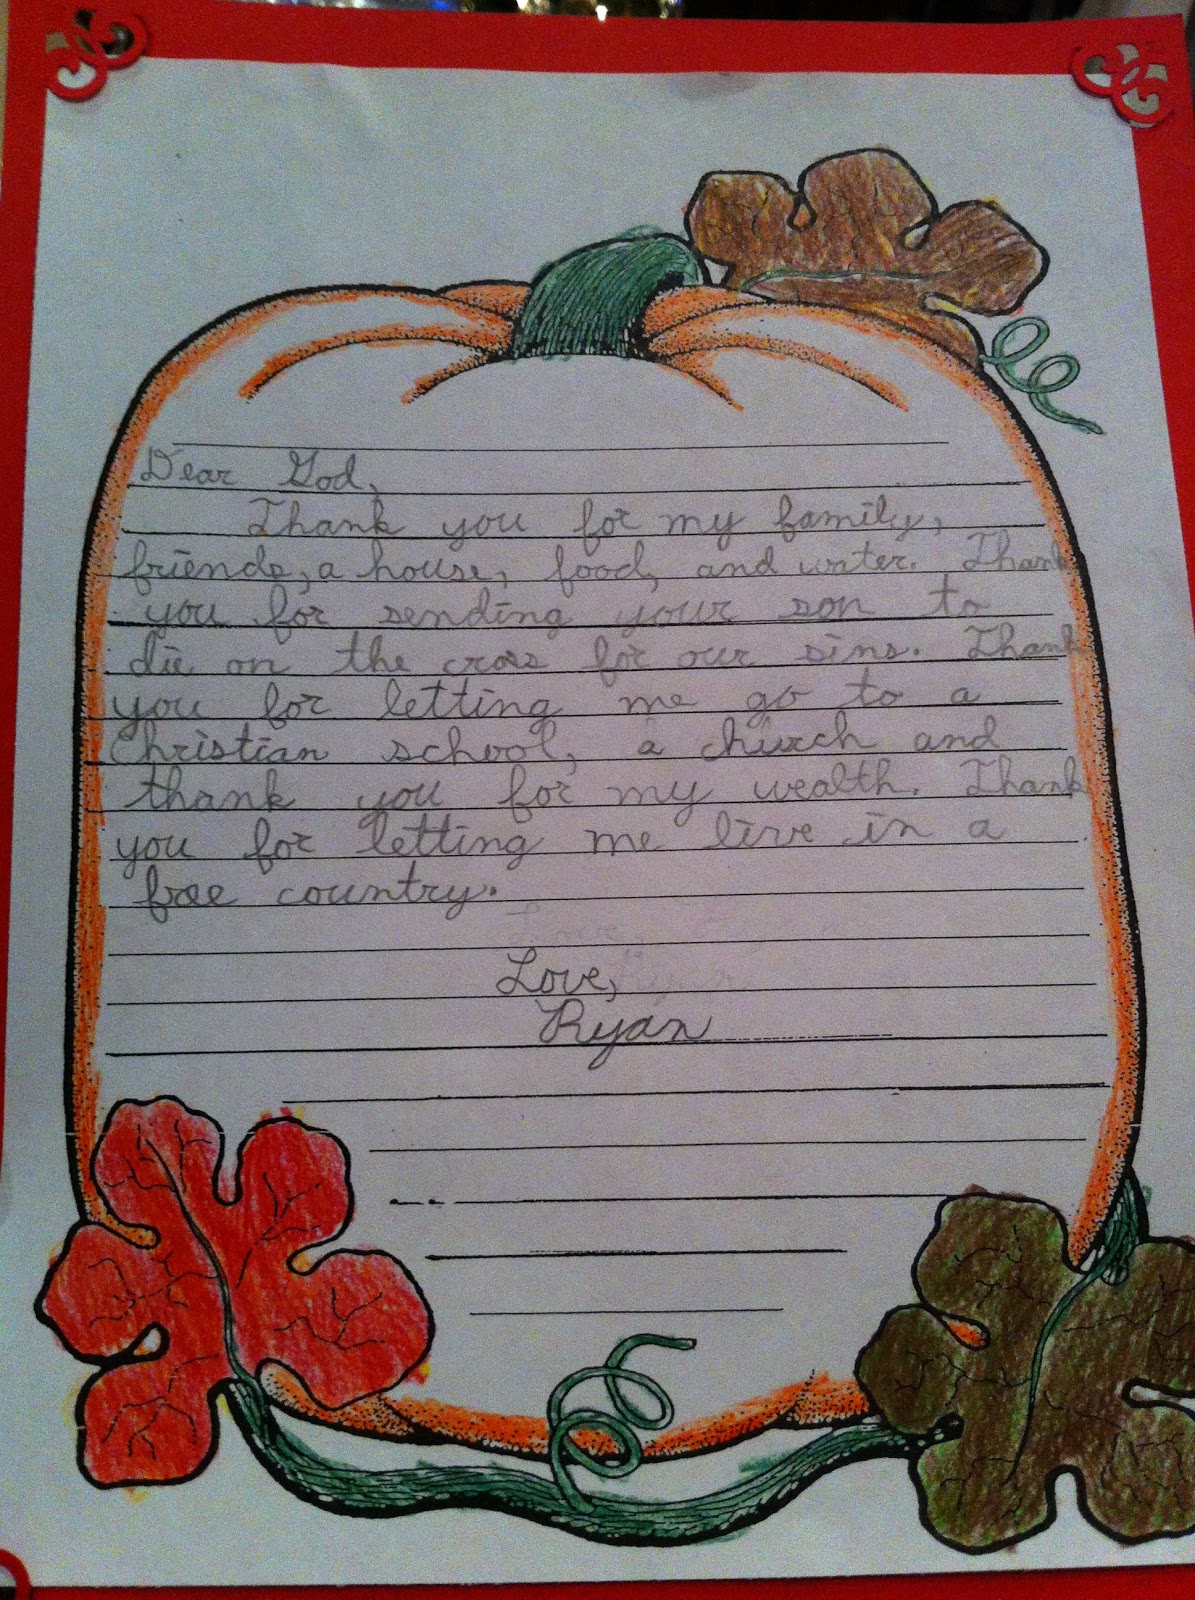 Dear God,
Thank you for my family,
friends, a house, food, and water. Thank
you for sending your son to
die on the cross for our sins. Thank
you for letting me go to a
Christian school, a church and
thank you for my wealth. Thank
you for letting me live in a
free country.
Love,
Ryan